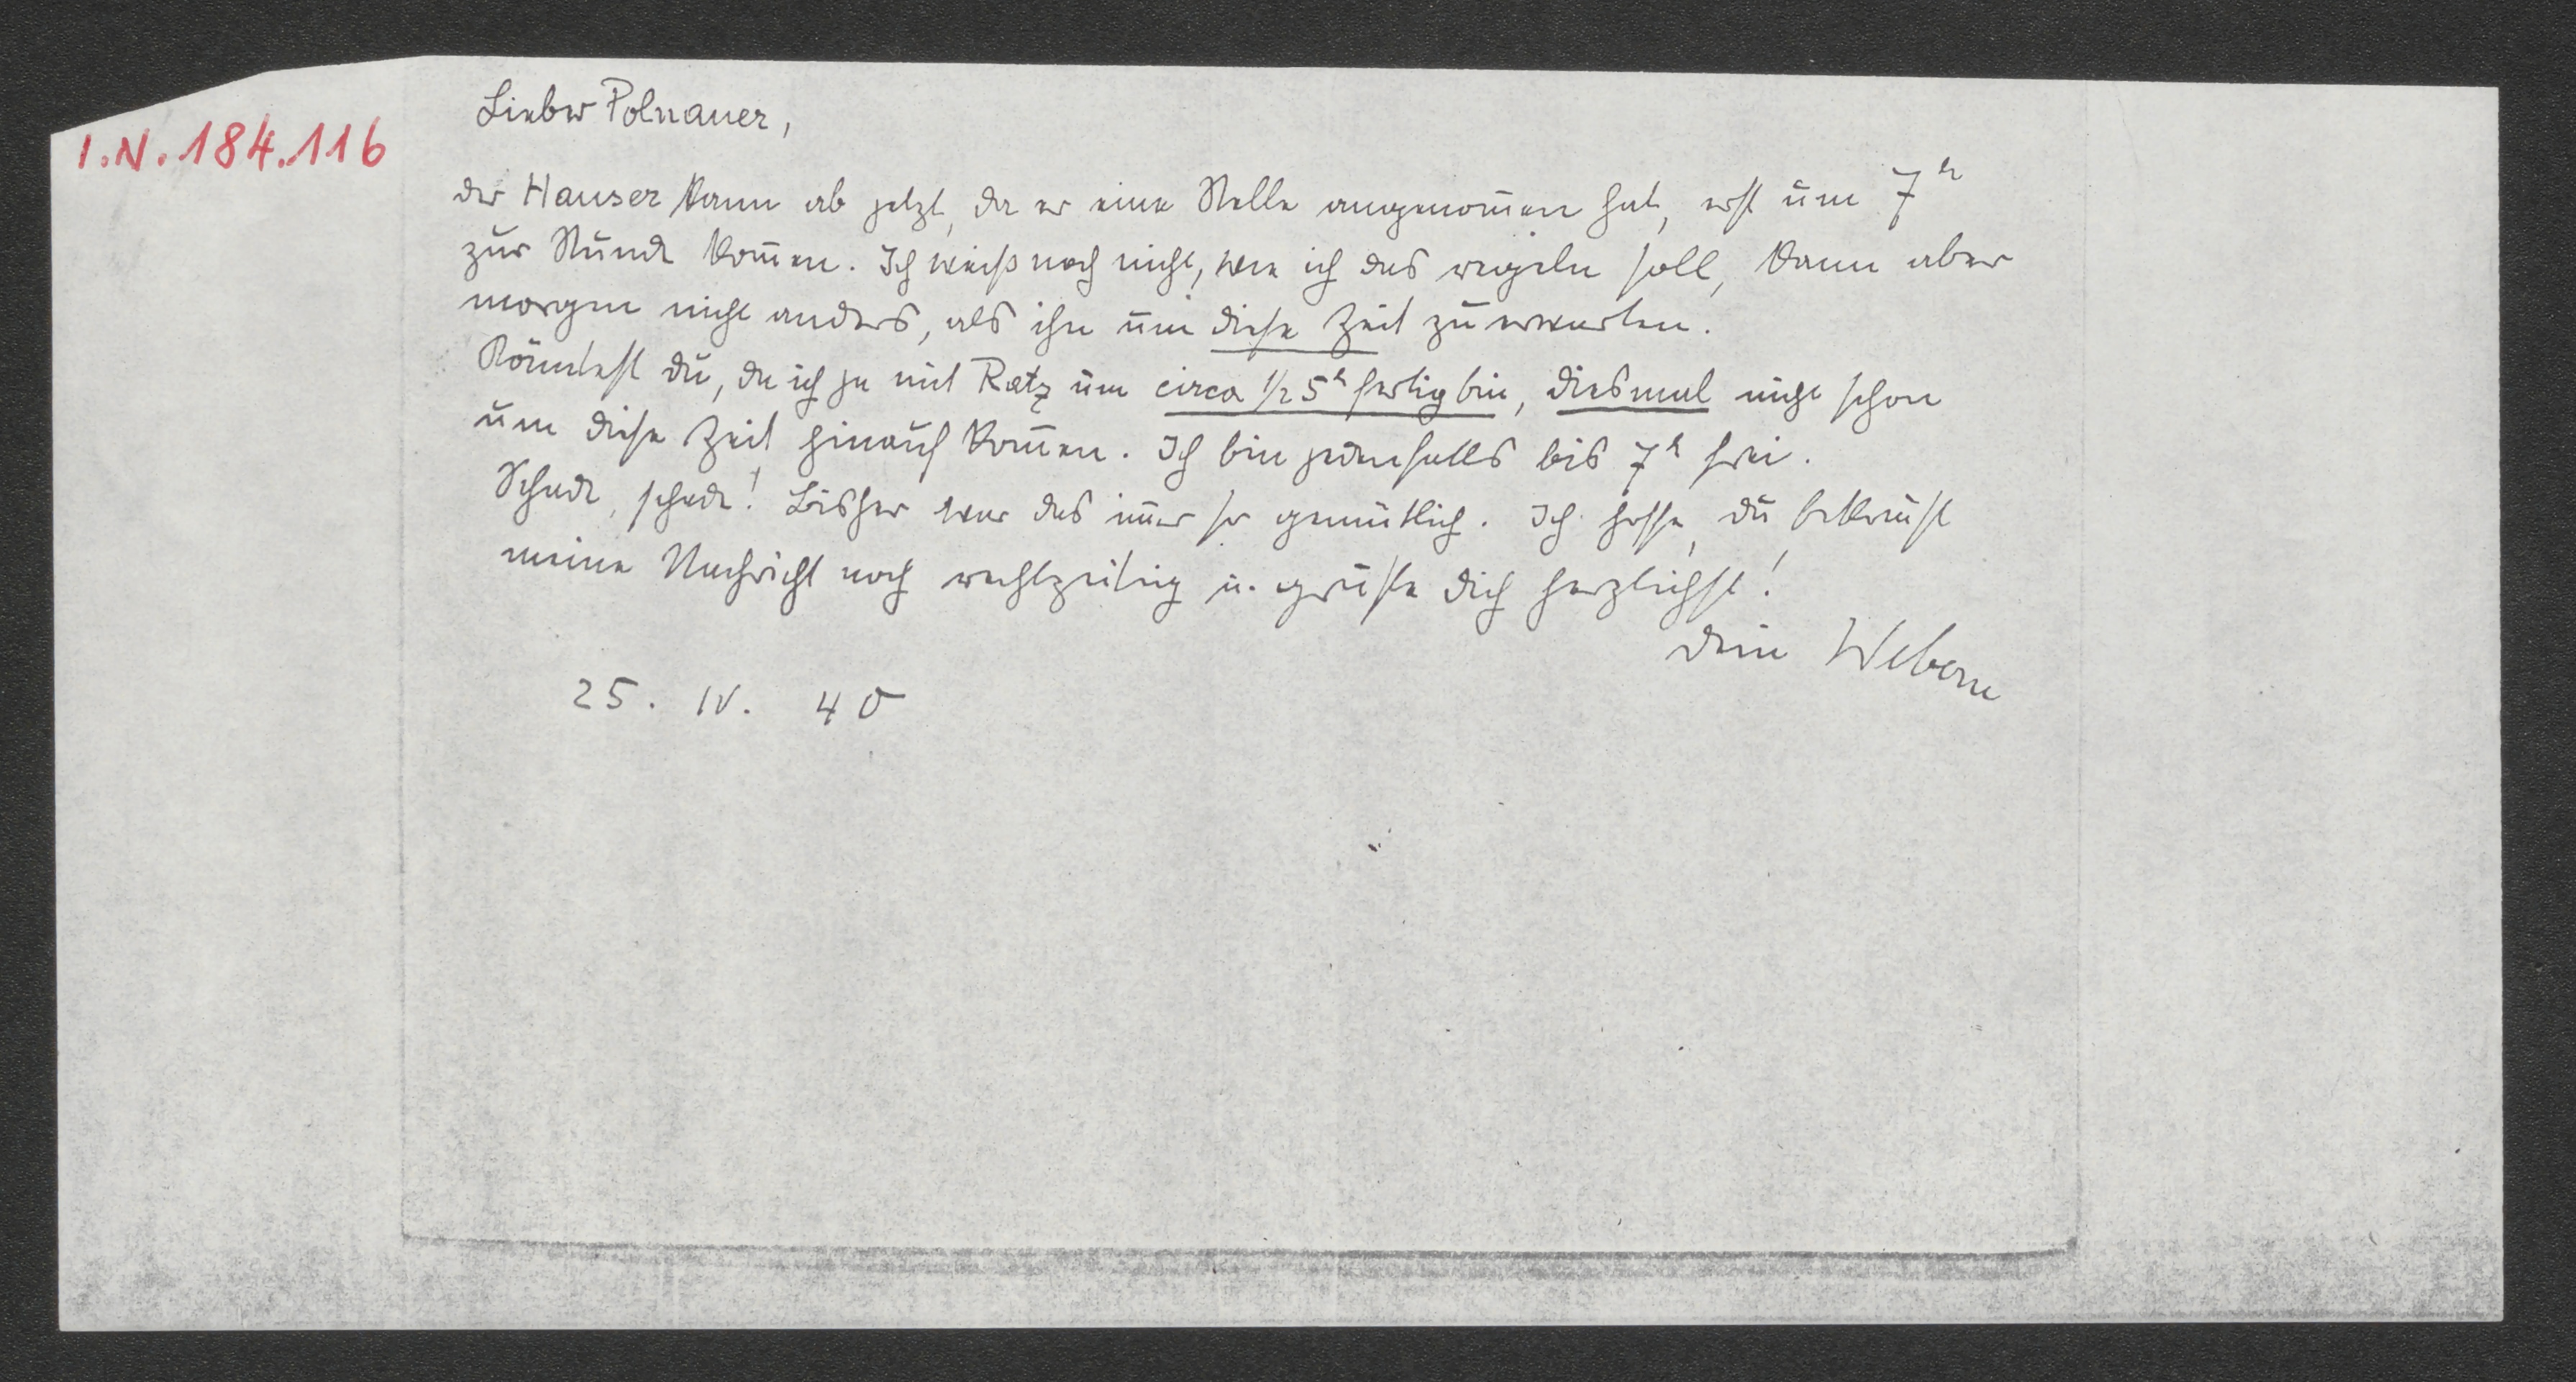 I.N. 184.116
Lieber Polnauer,
der Hauser kann ab jetzt, da er eine Stelle angenom̅en hat, erst um 7ʰ
zur Stunde kom̅en. Ich weiß noch nicht, wie ich das regeln soll, kann aber
morgen nicht anders, als ihn um diese Zeit zu erwarten.
Könntest du, da ich ja mit Ratz um circa ½ 5ʰ fertig bin, diesmal nicht schon
um diese Zeit hinauf kom̅en. Ich bin jedenfalls bis 7ʰ frei.
Schade, schade! Bisher war das im̅er so gemütlich. Ich hoffe, du bekom̅st
meine Nachricht noch rechtzeitig u. grüße dich herzlichst!
Dein Webern
25. IV. 40